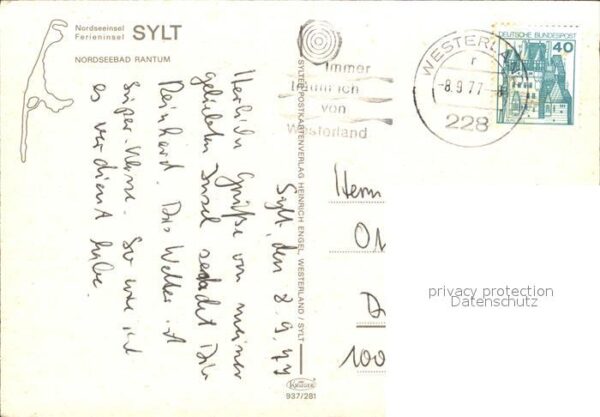 Nordseeinsel
Ferieninsel SYLT
NORDSEEBAD RANTUM
Sylt, den 8.9.77
Herzliche Grüße von meiner
geliebten Insel sendet Dir
Reinhard. Das Wetter ist
super-Klasse. So wie ich
es verdient habe.
SYLTER POSTKARTENVERLAG HEINRICH ENGEL, WESTERLAND / SYLT
KRÜGER
937/281
Immer
von
Westerland
WESTERLAND
r
-8.9.77-8
228
DEUTSCHE BUNDESPOST
40
Herrn
01
A
100
privacy protection
Datenschutz